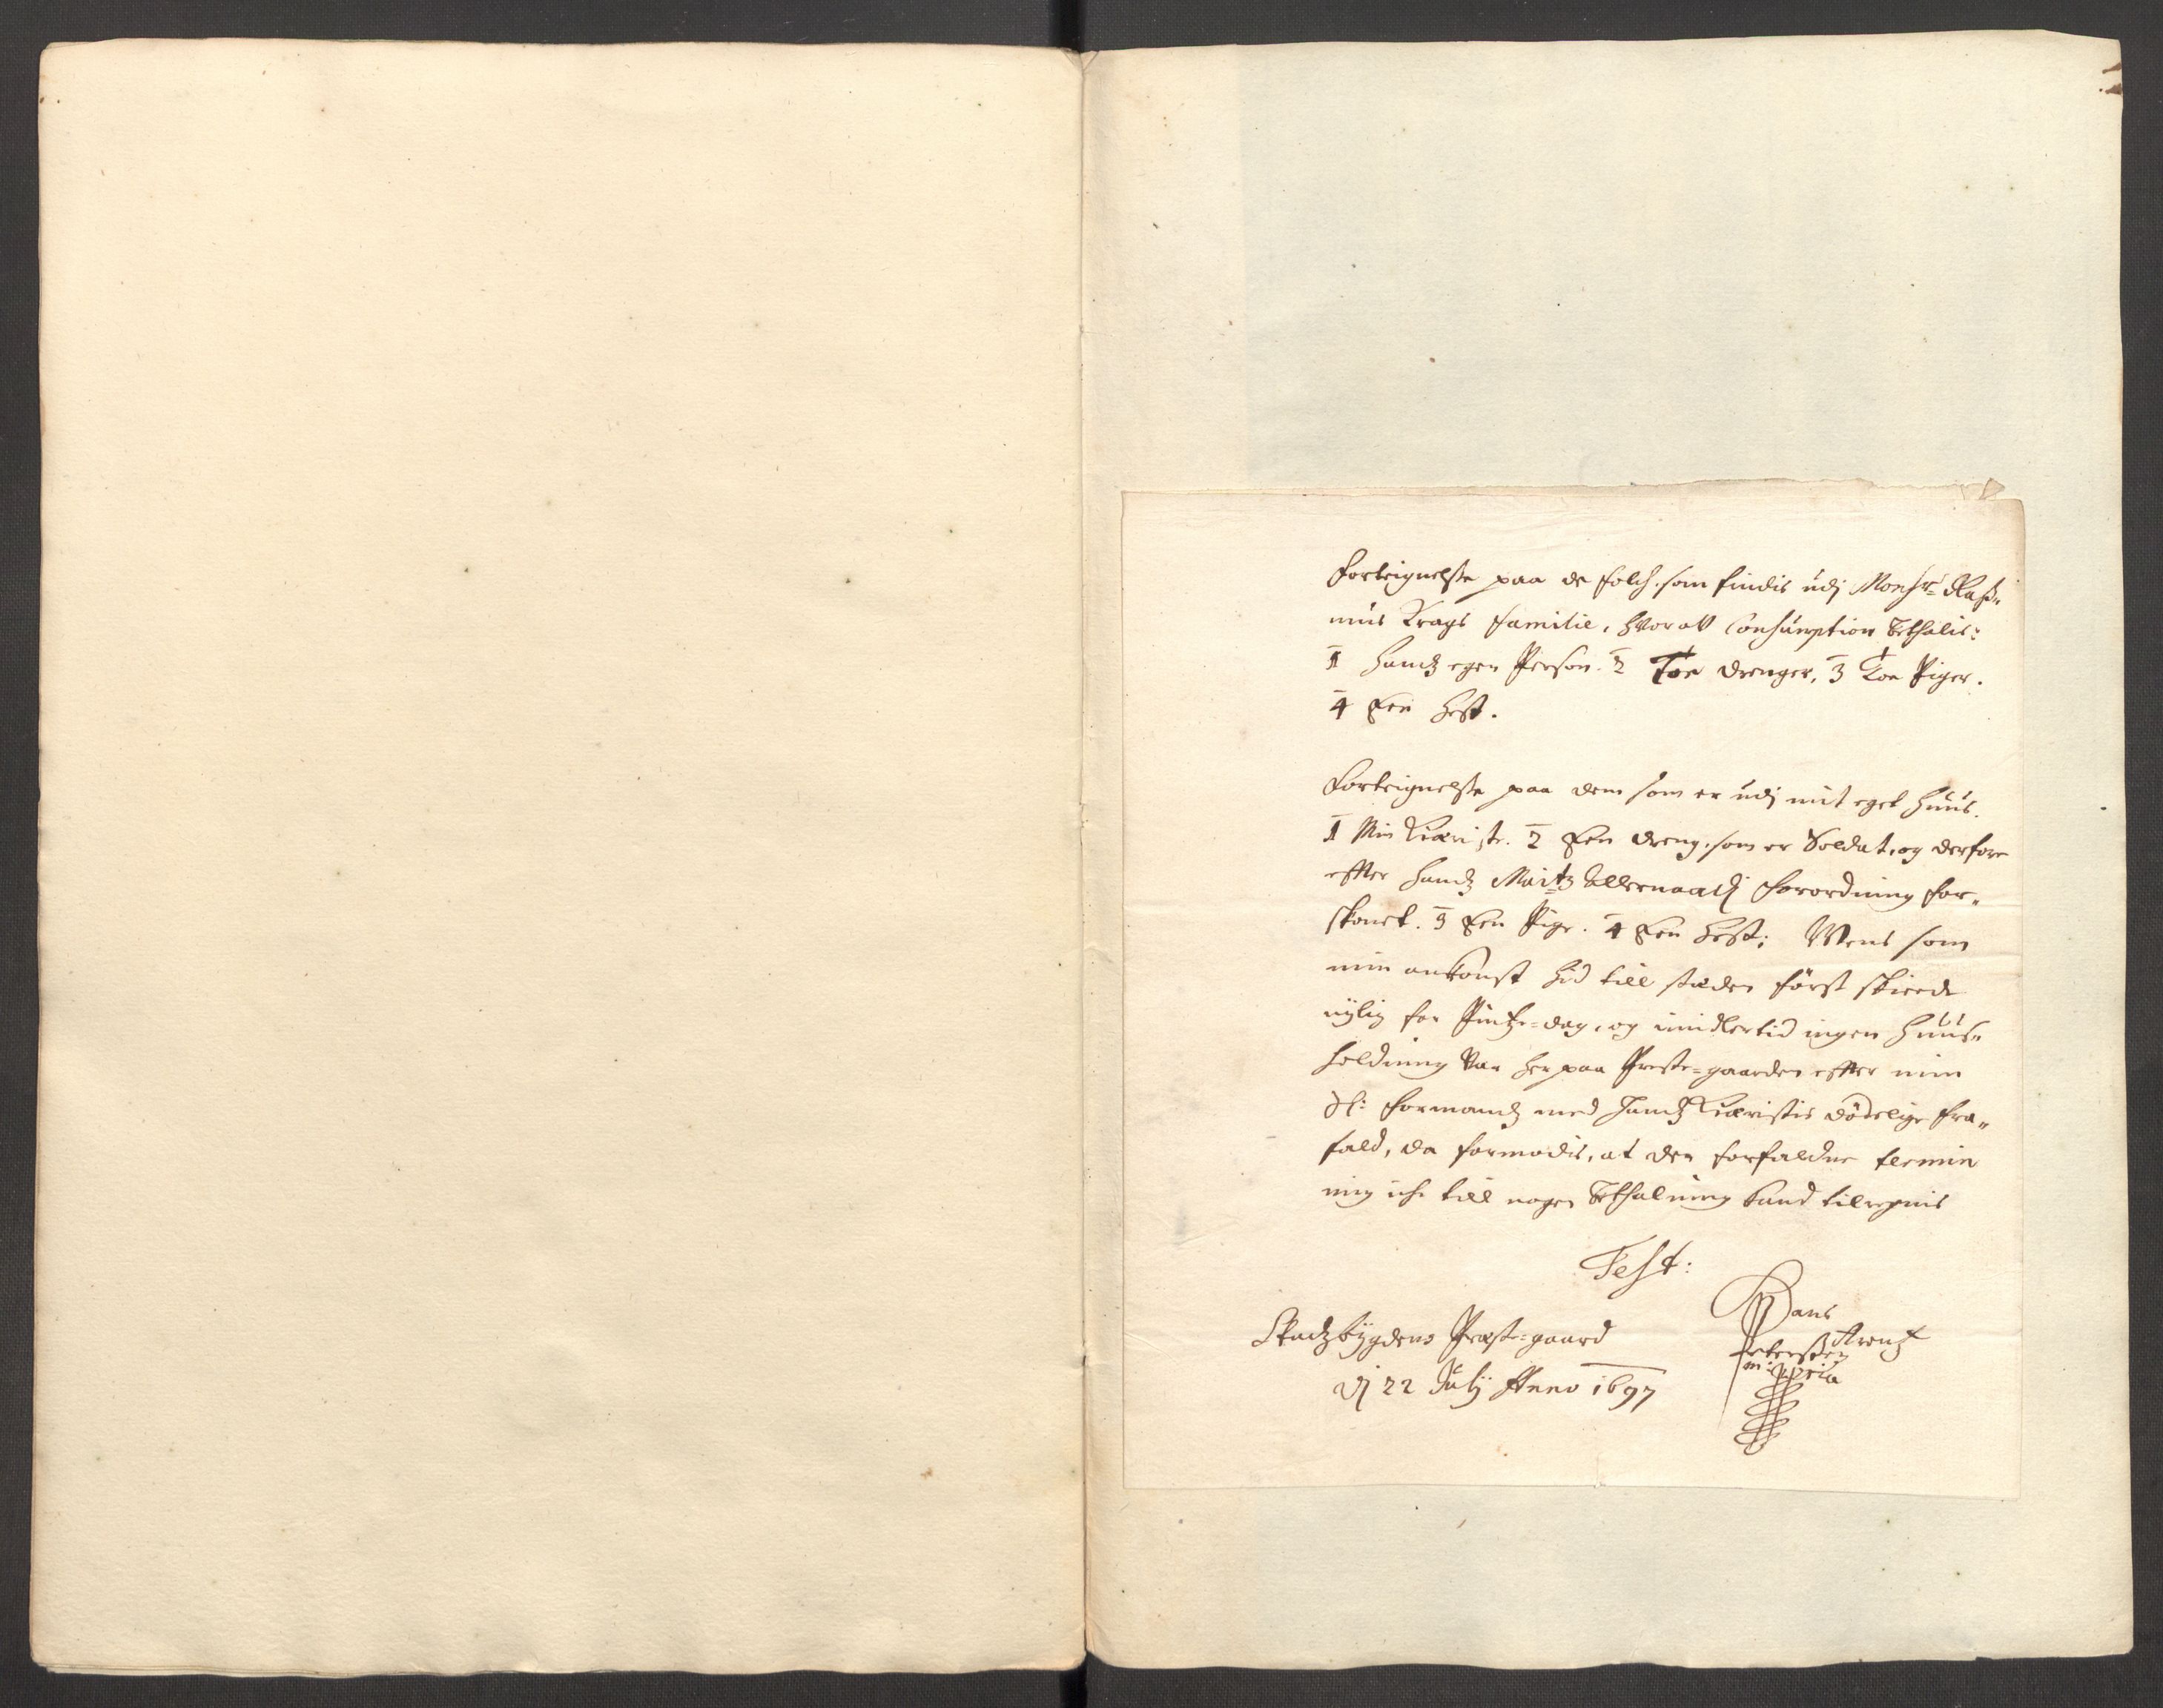 Forteignelse paa de folch, som findis udj Monsr= Rass„
mus Krags familie, hvoraf Consumption bethalis:
1 Handz egen Person. 2 Toe drenger, 3 Toe Piger.
4 Een hest.
Forteignelse paa dem som er udj mit eget huus.
1 Min Kieriste. 2 Een dreng, som er Soldat, og derfore
effter handz Maitz allernaadi forordning for„
skonet. 3 Een Pige. 4 Een hest; Mens som
min ankomst hid till stæden först skeede
nylig for Pintze=dag, og imidlertid ingen huus„
holdning var her paa Preste=gaarden effter min
Sl: formandz med handz Kieristis dödelige fra„
fald, da formodis, at den forfaldne termin
mig iche till nogen bethalning kand tilregnis
Test:
Stadzbygdens Præste=gaard
dj 22 Julij Anno 1697
Hans
Peterssen Arentz
m: ppria